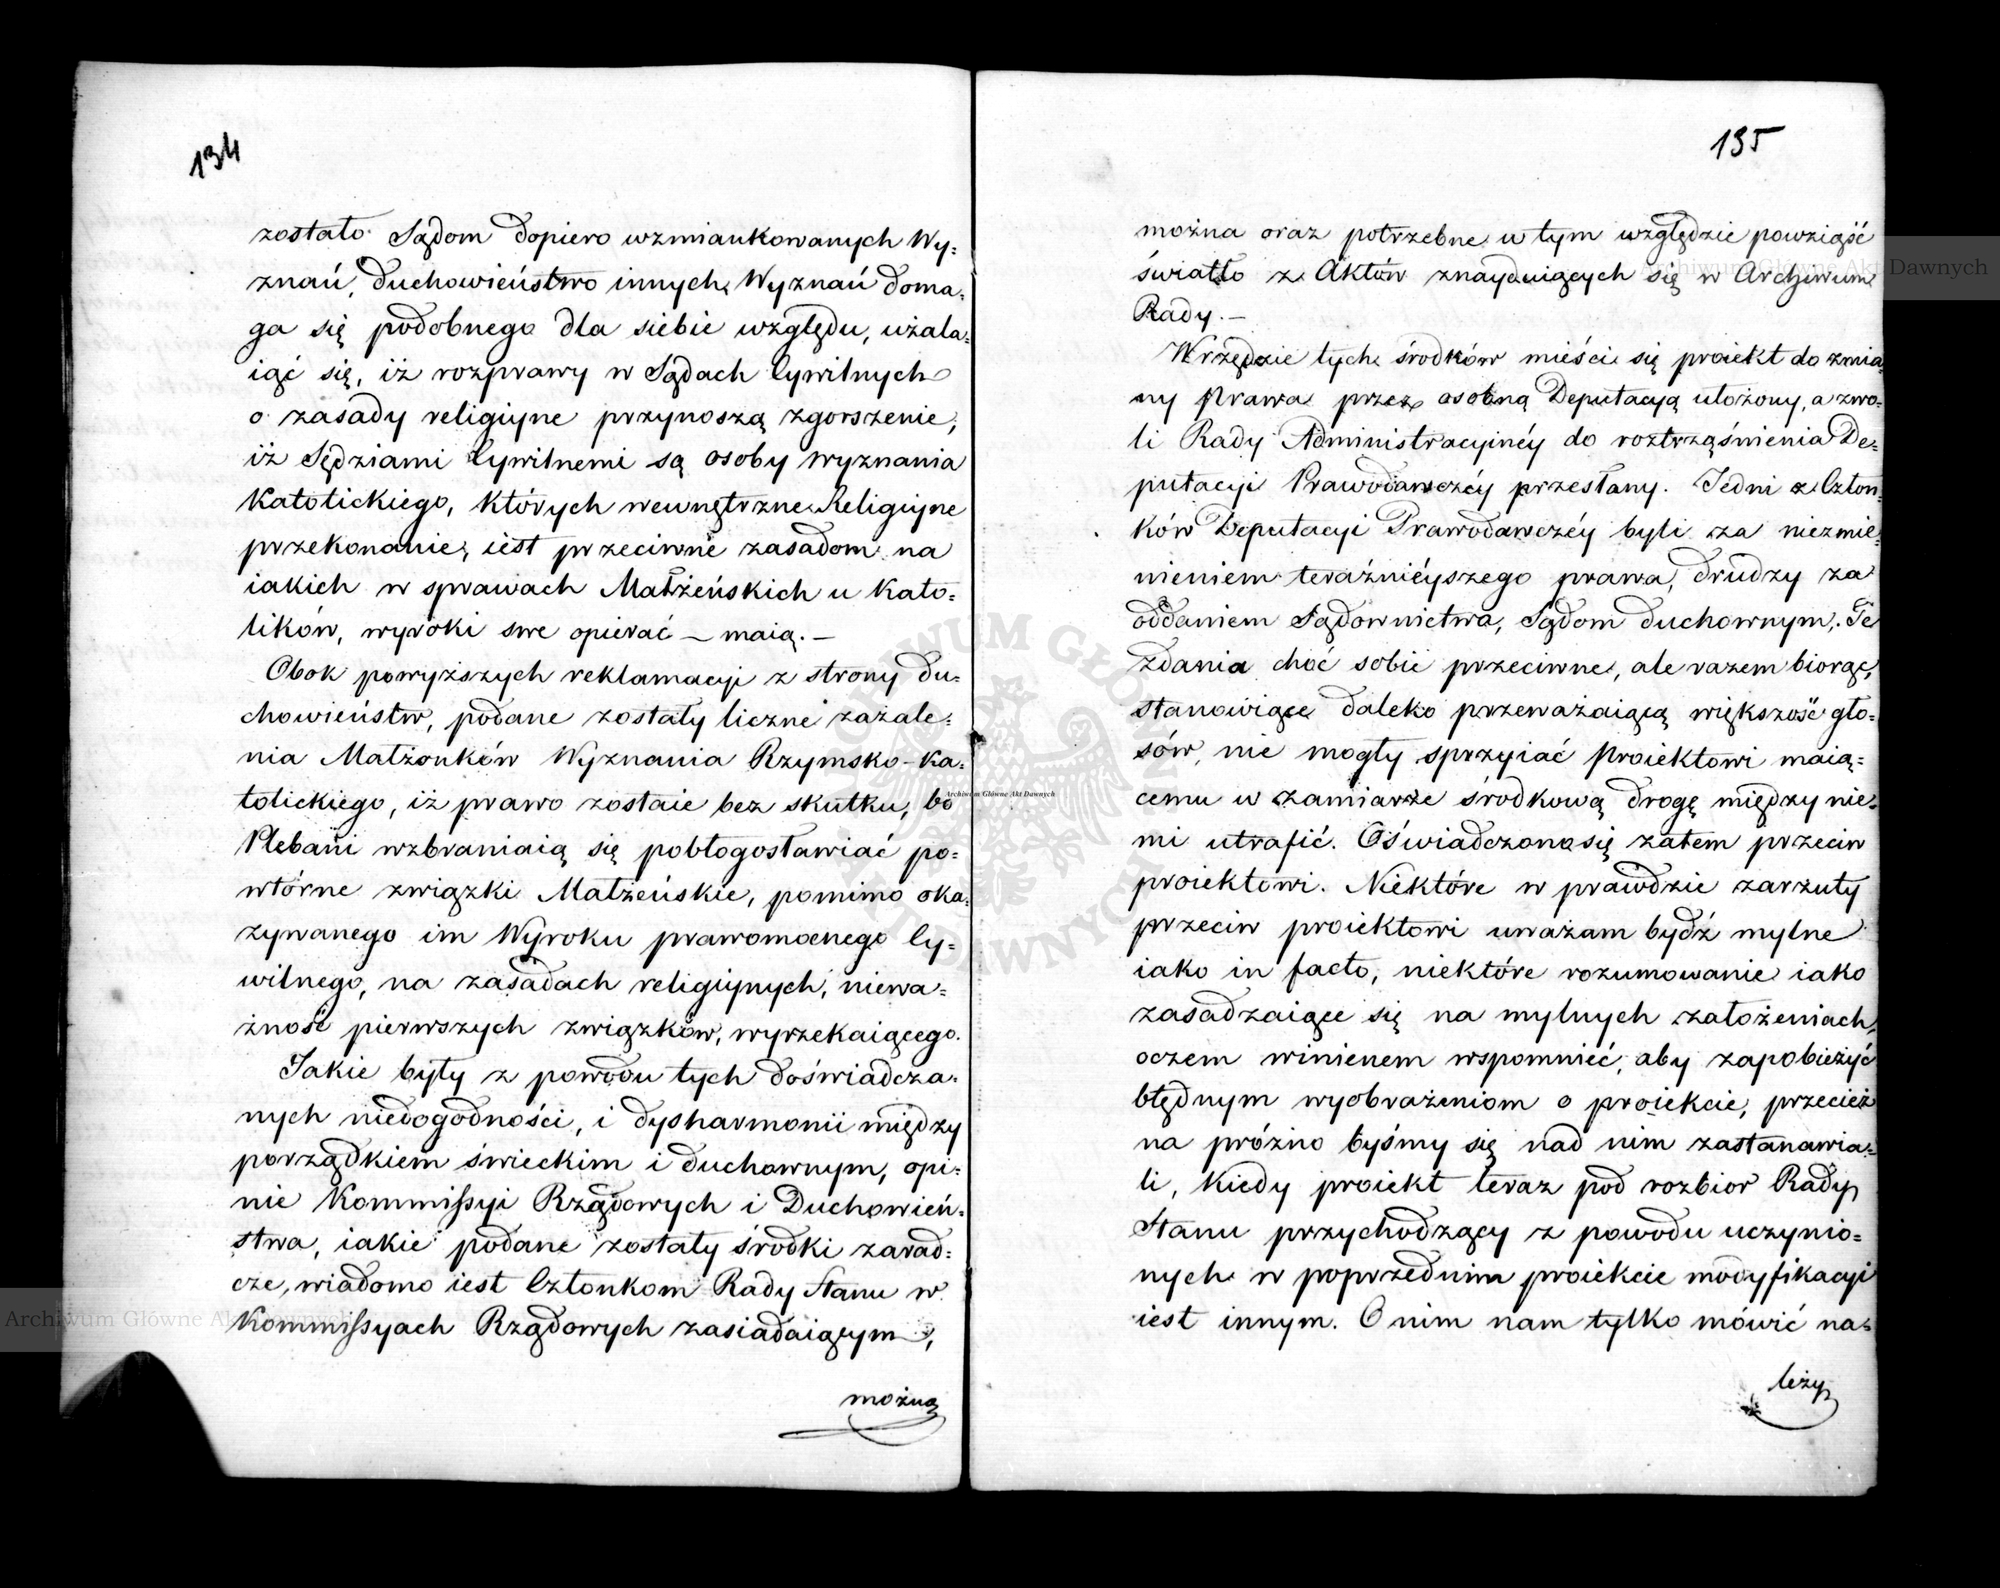 134
zostało Sądom dopiero wzmiankowanych Wy=
znań, duchowieństwo innych Wyznań doma=
ga się podobnego dla siebie względu, użala=
iąc się, iż rozprawy w Sądach Cywilnych
o zasady religiyne przynoszą zgorszenie,
iż Sędziami Cywilnemi są osoby wyznania
Katolickiego, których wewnętrzne Religiyne
przekonanie, iest przeciwne zasadom na
iakich w sprawach Małżeńskich u Kato=
lików, wyroki swe opierać – maią. –
Obok powyższych reklamacyi z strony du=
chowieństw, podane zostały liczne zażale=
nia Małżonków Wyznania Rzymsko-Ka=
tolickiego, iż prawo zostaie bez skutku, bo
Plebani wzbraniaią się pobłogosławiać po=
wtórne związki Małżeńskie, pomimo oka=
zywanego im Wyroku prawomocnego Cy=
wilnego, na zasadach religiynych, niewa=
żność pierwszych związków, wyrzekaiącego.
Jakie były z powodu tych doświadcza=
nych niedogodności, i dysharmonii między
porządkiem świeckim i duchownym, opi=
nie Kommissyi Rządowych i Duchowień=
stwa, iakie podane zostały środki zarad=
cze, wiadomo iest Członkom Rady Stanu w
Kommissyach Rządowych zasiadaiącym,
można
135
można oraz potrzebne w tym względzie powziąść
światło z Aktów znayduiących się w Archiwum
Rady. –
W rzędzie tych środków mieści się proiekt do zmia=
ny Prawa przez osobną Deputacyą ułożony, a zwo=
li Rady Administracyinéy do roztrząśnienia De=
putacyi Prawodawczéy przesłany. Jedni z Człon=
ków Deputacyi Prawodawczéy byli za niezmie=
nieniem teraźniéyszego prawa, drudzy za
oddaniem Sądownictwa, Sądom duchownym. Te
zdania choć sobie przeciwne, ale razem biorąc,
stanowiące daleko przeważaiącą większość gło=
sów, nie mogły sprzyiać Proiektowi maią=
cemu w zamiarze środkową drogę między nie=
mi utrafić. Oświadczono się zatem przeciw
proiektowi. Niektóre w prawdzie zarzuty
przeciw proiektowi uważam bydź mylne
iako in facto, niektóre rozumowanie iako
zasadzaiące się na mylnych założeniach,
oczem winienem wspomnieć, aby zapobieżyć
błędnym wyobrażeniom o proiekcie, przecież
na próżno byśmy się nad nim zastanawia=
li, kiedy proiekt teraz pod rozbior Rady
Stanu przychodzący z powodu uczynio=
nych w poprzednim proiekcie modyfikacyi
iest innym. O nim nam tylko mówić na=
leży
Archiwum Główne Akt Dawnych
Archiwum Główne Akt Dawnych
Archiwum Główne Akt Dawnych
ARCHIWUM GŁÓWNE AKT DAWNYCH